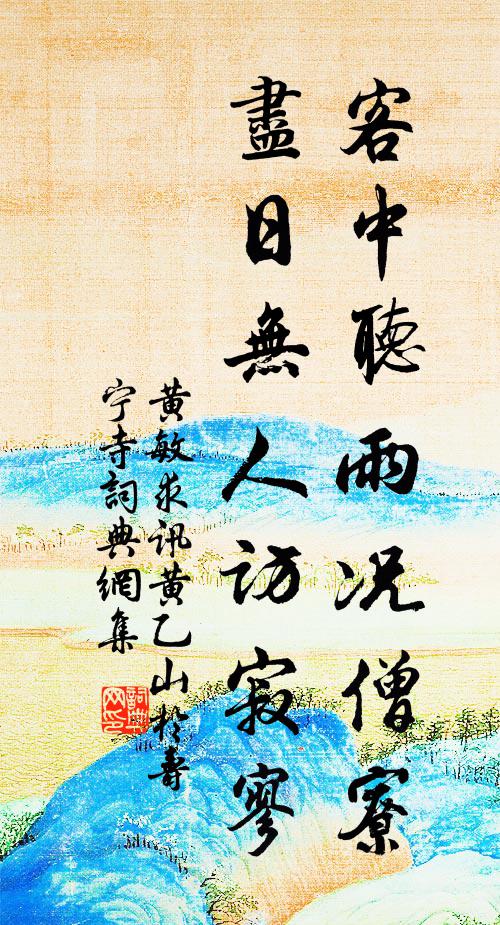 客中聽雨況僧寮
盡日無人訪寂寥
黄敏求訊黄乙山於壽
宁寺詞典網集